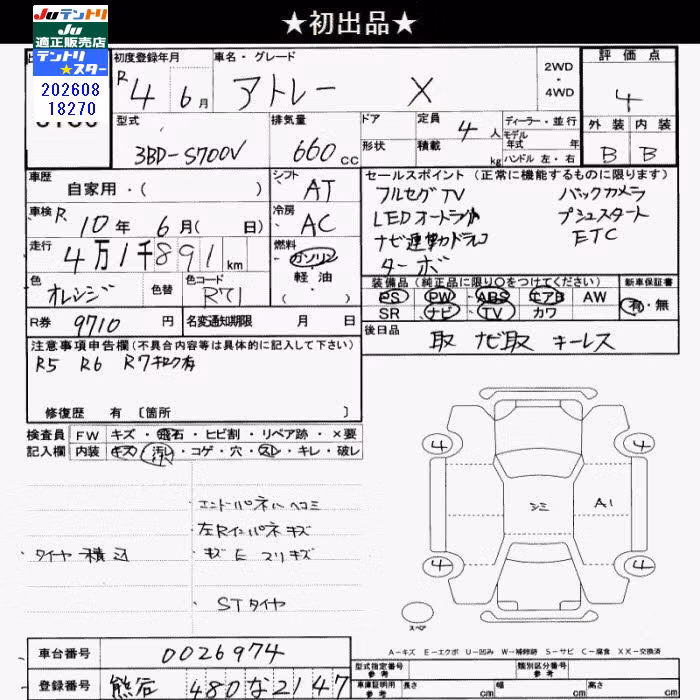 ★初出品★
Juテントリ
Ju
適正販売店
テントリ
★スター
202608
18270
初度登録年月
R4年6月
車名・グレード
アトレー X
2WD
・
4WD
評価点
4
外装 内装
B B
型式
3BD-S700V
排気量
660cc
ドア
形状
定員 4人
積載 kg
ディーラー・並行
モデル年式 年
ハンドル 左・右
車歴
自家用・( )
シフト
AT
車検 R10年6月( 日)
冷房
AC
走行
4万1千891km
燃料
ガソリン
軽油
・( )
色
オレンジ
色替
色コード
R71
R券 9710円
名変通知期限 月 日
セールスポイント(正常に機能するものに限ります)
フルセグTV バックカメラ
LEDオートライト プシュスタート
ナビ連動カドラレコ ETC
ターボ
装備品(純正品に限り○をつけてください)
新車保証書
PS PW ABS エアB AW
SR ナビ TV カワ
有・無
後日品
取 ナビ取 キーレス
注意事項申告欄(不具合内容等は具体的に記入して下さい)
R5 R6 R7キロク有
修復歴 有〔箇所 〕
検査員
記入欄
FW キズ・飛石・ヒビ割・リペア跡・×要
内装 キズ・汚レ・コゲ・穴・スレ・キレ・破レ
エンドパネル ヘコミ
左Rインパネ キズ
タイヤ 積込
キズ E スリキズ
STタイヤ
4 4
シミ A1
4 4
スペア
A－キズ E－エクボ U－凹み W－補修跡 S－サビ C－腐食 XX－交換済
車台番号 0026974
登録番号 熊谷 480 な 2147
型式指定番号
参考
類別区分番号
参考
車庫証明用
参考
長さ cm 幅 cm 高さ cm